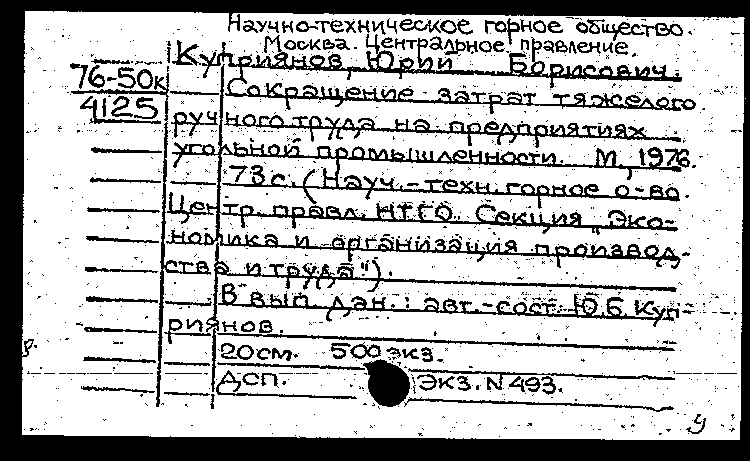 Научно-техническое горное общество.
Москва. Центральное правление.
Куприянов, Юрий Борисович.
76-50к
4125
Сокращение затрат тяжелого
ручного труда на предприятиях
угольной промышленности. М., 1976.
73 с. (Науч.-техн. горное о-во.
Центр. правл. НТГО. Секция „Эко-
номика и организация производ-
ства и труда").
В вып. дан.: авт.-сост. Ю.Б. Куп-
риянов.
20 см. 500 экз.
ДСП. Экз. N 493.
у